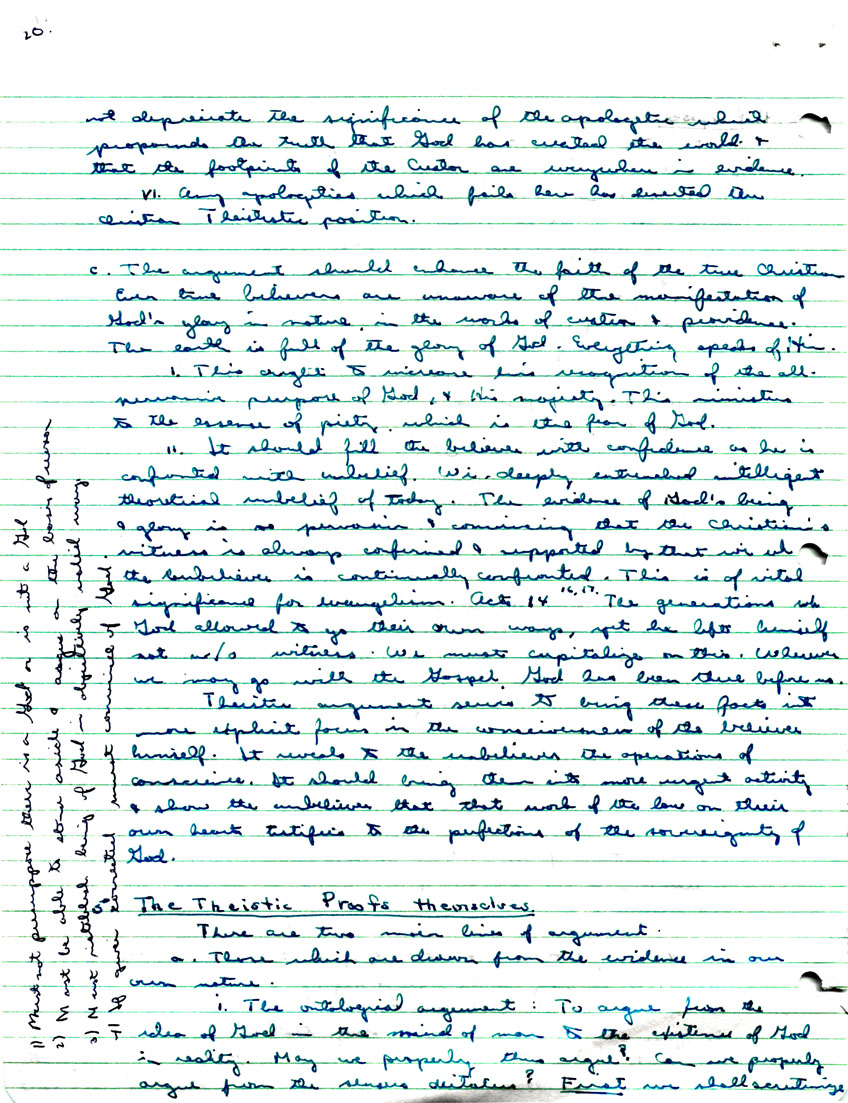 20.
not depreciate the significance of the apologetic which
propounds the truth that God has created the world &
that the footprints of the Creator are everywhere in evidence.
VI. Any apologetics which fails here has deserted the
Christian Theistic position.
c. The argument should enhance the faith of the true Christian
Even true believers are unaware of the manifestation of
God's glory in nature, in the works of creation & providence.
The earth is full of the glory of God. Everything speaks of Him.
i. This ought to increase his recognition of the all-
pervasive purpose of God, & His majesty. This ministers
to the essence of piety, which is the fear of God.
ii. It should fill the believer with confidence as he is
confronted with unbelief. Wi. deeply entrenched intelligent
theoretical unbelief of today. The evidence of God's being
& glory is so pervasive & convincing that the Christian's
witness is always confirmed & supported by that wi wh
the unbeliever is continually confronted. This is of vital
significance for evangelism. Acts 14 16,17. The generations wh
God allowed to go their own ways, yet he left himself
not w/o witness. We must capitalize on this. Wherever
we may go with the Gospel God has been there before us.
Theistic argument serves to bring these facts into
more explicit focus in the consciousness of the believer
himself. It reveals to the unbeliever the operations of
conscience. It should bring them into more urgent activity
& show the unbeliever that that work of the law on their
own hearts testifies to the perfections of the sovereignty of
God.
5° The Theistic Proofs themselves.
There are two main lines of argument.
a. Those which are drawn from the evidence in our
own nature.
i. The ontological argument: To argue from the
idea of God in the mind of man to the existence of God
in reality. May we properly thus argue? Can we properly
argue from the sensus deitatis? First we shall scrutinize
1) Must not presuppose there is a God or is not a God
2) Must be able to stand aside & argue on the basis of reason
3) Must establish being of God in objectively valid way
4) If given correctly must convince of God.